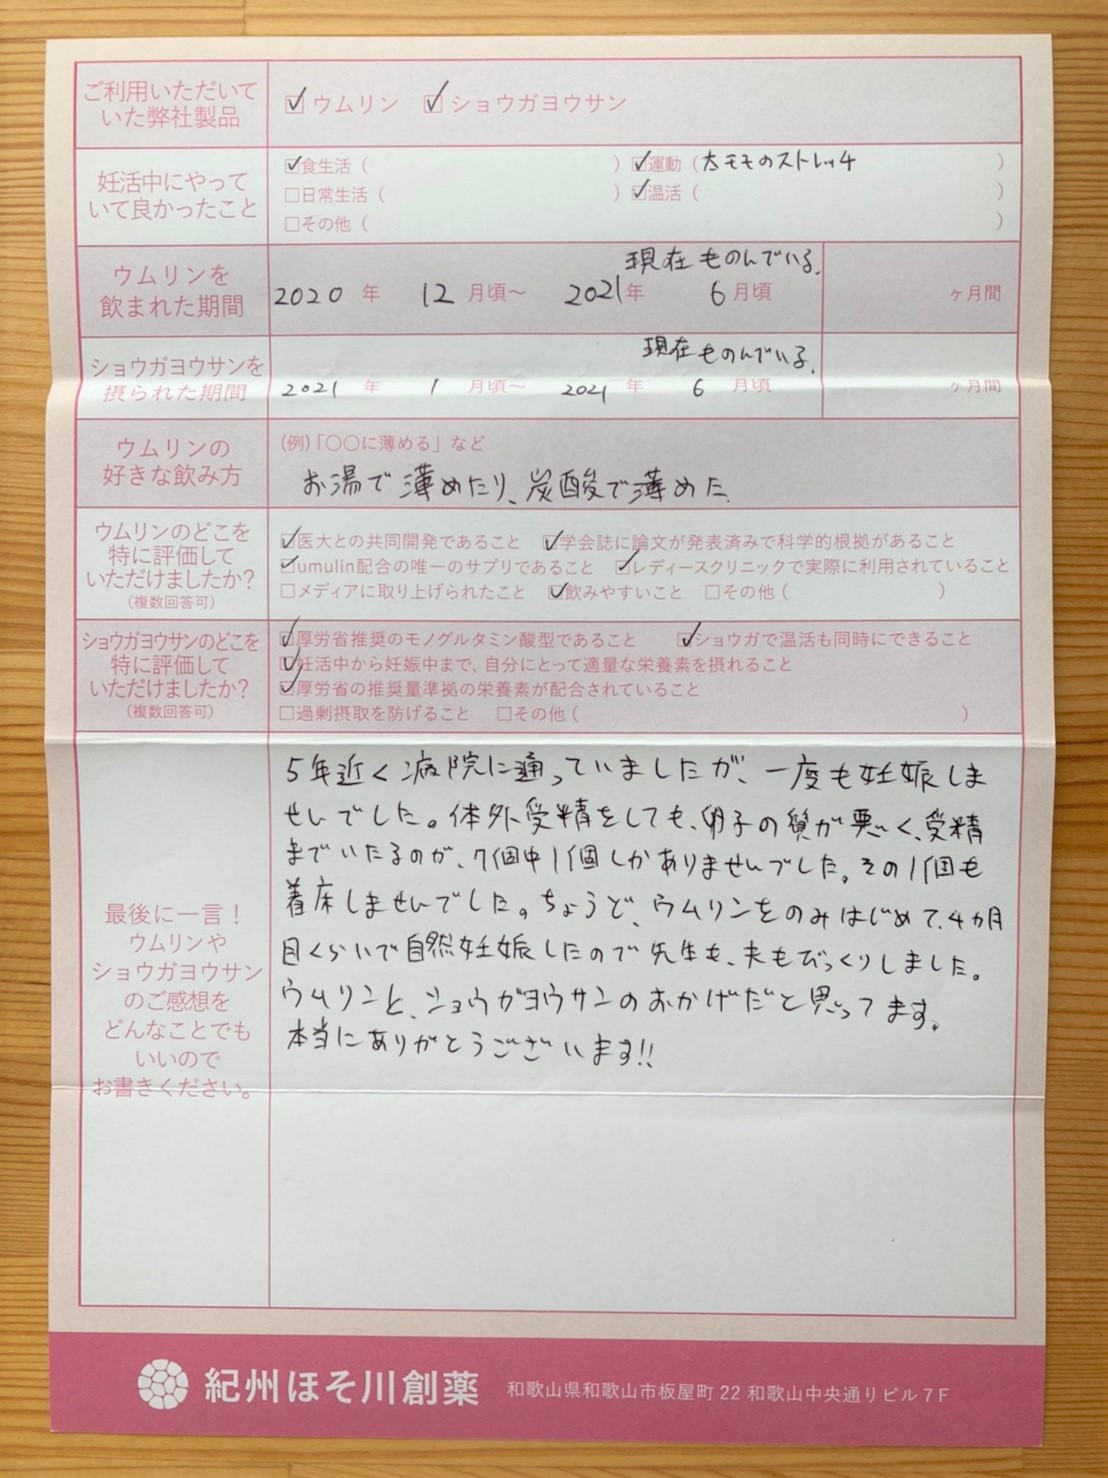 ご利用いただいて
いた弊社製品
☑ウムリン ☑ショウガヨウサン
妊活中にやって
いて良かったこと
☑食生活( ) ☑運動(太モモのストレッチ )
□日常生活( ) ☑温活( )
□その他( )
ウムリンを
飲まれた期間
現在ものんでいる。
2020年 12月頃〜 2021年 6月頃 ヶ月間
ショウガヨウサンを
摂られた期間
現在ものんでいる。
2021年 1月頃〜 2021年 6月頃 ヶ月間
ウムリンの
好きな飲み方
(例)「〇〇に薄める」など
お湯で薄めたり、炭酸で薄めた
ウムリンのどこを
特に評価して
いただけましたか?
(複数回答可)
☑医大との共同開発であること ☑学会誌に論文が発表済みで科学的根拠があること
☑umulin配合の唯一のサプリであること ☑レディースクリニックで実際に利用されていること
□メディアに取り上げられたこと ☑飲みやすいこと □その他( )
ショウガヨウサンのどこを
特に評価して
いただけましたか?
(複数回答可)
☑厚労省推奨のモノグルタミン酸型であること ☑ショウガで温活も同時にできること
☑妊活中から妊娠中まで、自分にとって適量な栄養素を摂れること
☑厚労省の推奨量準拠の栄養素が配合されていること
□過剰摂取を防げること □その他( )
最後に一言!
ウムリンや
ショウガヨウサン
のご感想を
どんなことでも
いいので
お書きください。
5年近く病院に通っていましたが、一度も妊娠しま
せんでした。体外受精をしても、卵子の質が悪く、受精
までいたるのが、7個中1個しかありませんでした。その1個も
着床しませんでした。ちょうど、ウムリンをのみはじめて、4ヵ月
目くらいで自然妊娠したので先生も、夫もびっくりしました。
ウムリンと、ショウガヨウサンのおかげだと思ってます。
本当にありがとうございます!!
紀州ほそ川創薬 和歌山県和歌山市板屋町22 和歌山中央通りビル7F